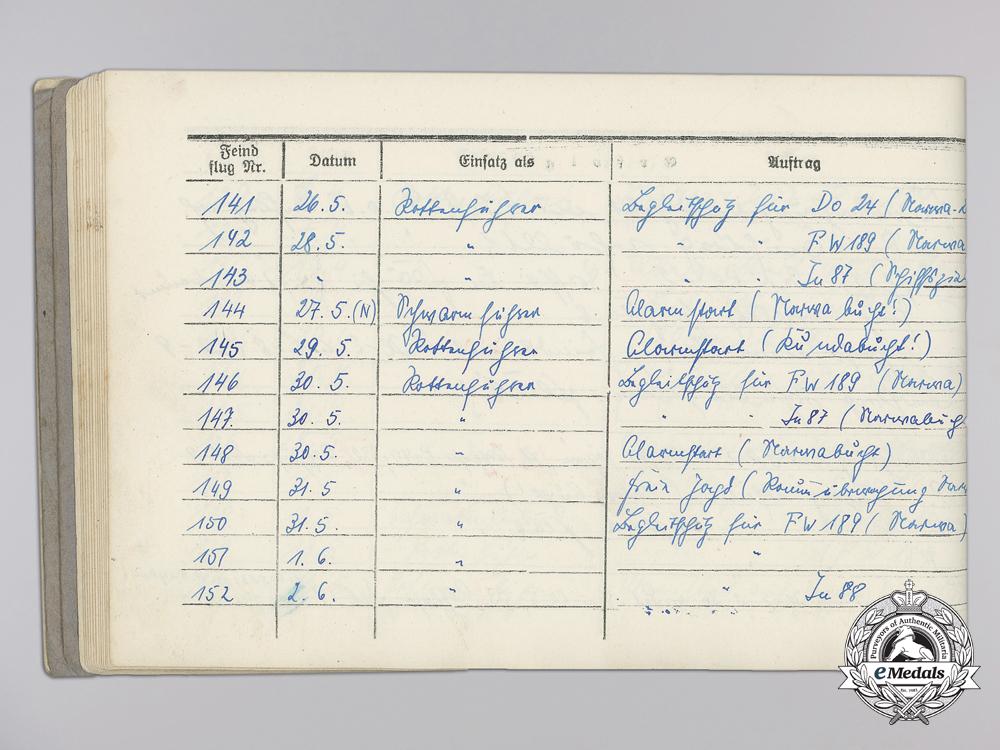 Feind Datum Einsatz als Auftrag
flug Nr.
141 26.5. Rottenführer Begleitschutz für Do 24 (Narwa-
142 28.5. " " " FW 189 (Narwa
143 " " " " Ju 87 (Schiffszie
144 27.5.(N) Schwarmführer Alarmstart (Narwabucht!)
145 29.5. Rottenführer Alarmstart (Kundabucht!)
146 30.5. Rottenführer Begleitschutz für FW 189 (Narwa)
147. 30.5. " " " Ju 87 (Narwabuch
148 30.5. " Alarmstart (Narwabucht)
149 31.5 " freie Jagd (Raumüberwachung Narw
150 31.5. " Begleitschutz für FW 189 (Narwa)
151 1.6. " "
152 2.6. " " Ju 88
Purveyors of Authentic Militaria
eMedals